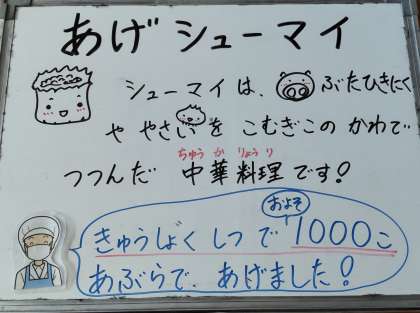 あげシューマイ
シューマイは、ぶたひきにく
や やさいを こむぎこの かわで
ちゅう か りょう り
つつんだ 中華料理です!
およそ
きゅうしょくしつで 1000こ
あぶらで、あげました!